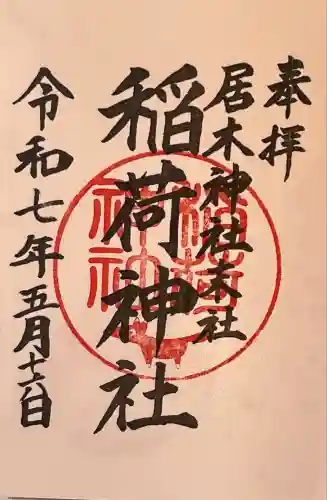 奉拝
居木神社末社
稲荷神社
令和七年五月十六日
稲荷
神社